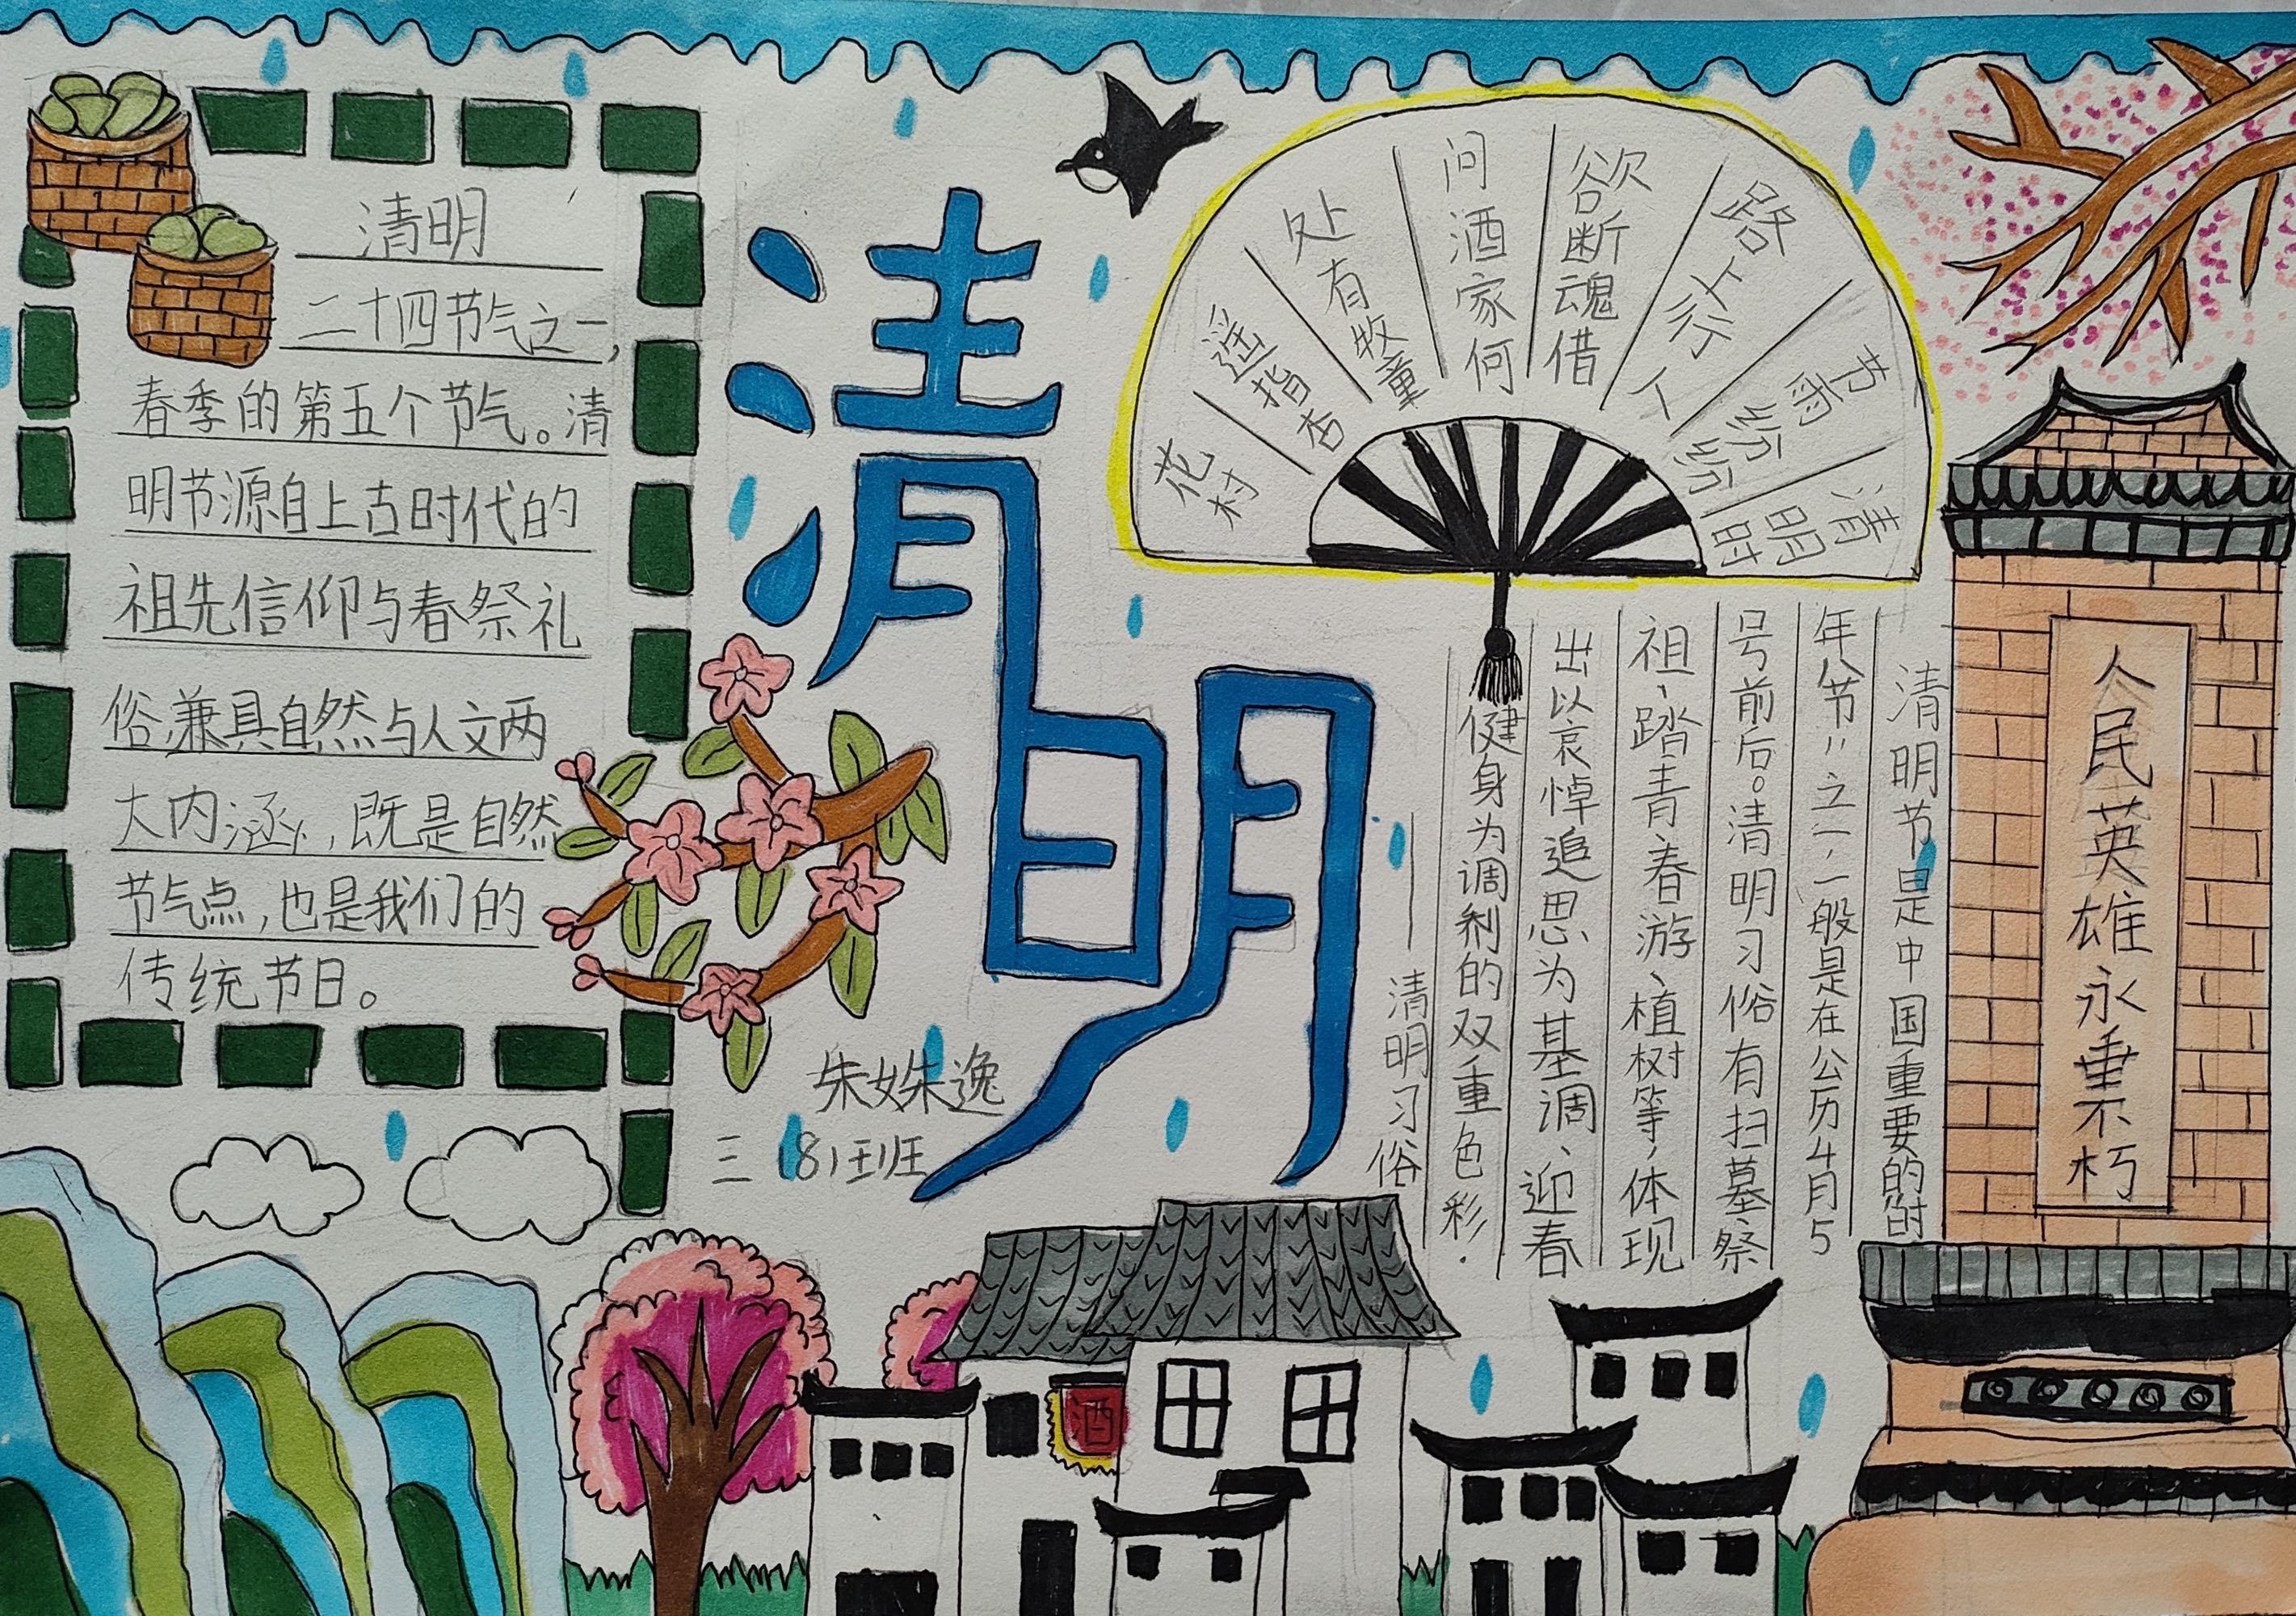 清明
二十四节气之一,
春季的第五个节气。清
明节源自上古时代的
祖先信仰与春祭礼
俗,兼具自然与人文两
大内涵,既是自然
节气点,也是我们的
传统节日。
清明
朱姝逸
三(8)班
清明时
节雨纷纷
路上行人
欲断魂借
问酒家何
处有牧童
遥指杏
花村
清明节是中国重要的时
年八节"之一,一般是在公历4月5
号前后。清明习俗有扫墓祭
祖、踏青春游、植树等,体现
出以哀悼追思为基调、迎春
健身为调剂的双重色彩.
——清明习俗
人民英雄永垂不朽
酒